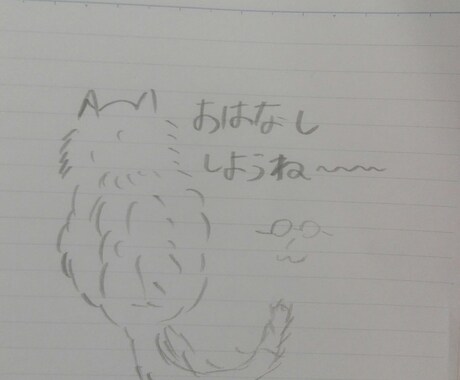 おはなし
しようね〜〜〜